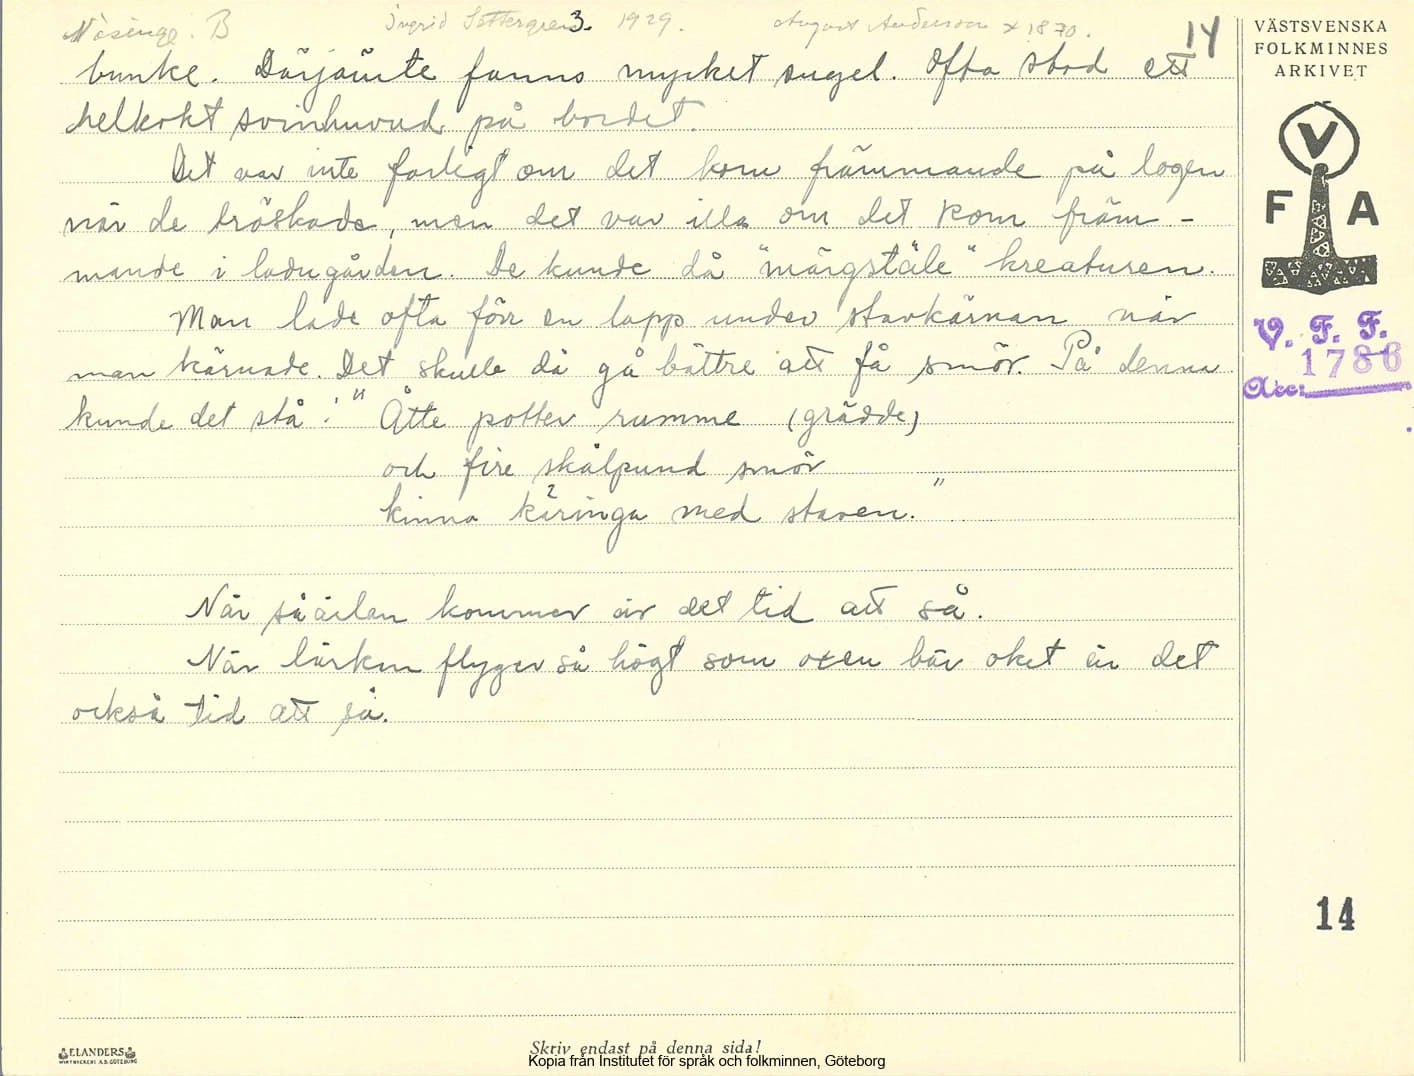 Näsinge. B Ingrid Settergren 3. 1929. August Anderson x 1870. 14
bunke. Därjämte fanns mycket sugel. Ofta stod ett
helkokt svinhuvud på bordet.
Det var inte farligt om det kom främmande på logen
när de tröskade, men det var illa om det kom främ-
mande i ladugården. De kunde då "märgstäle" kreaturen.
Man lade ofta förr en lapp under stavkärnan när
man kärnade. Det skulle då gå bättre att få smör. På denna
kunde det stå: "Åtte potter rumme (grädde)
och fire skålpund smör
kinna käringa med staven."
När såärlan kommer är det tid att så.
När lärkan flyger så högt som oxen bär oket är det
också tid att så.
VÄSTSVENSKA
FOLKMINNES
ARKIVET
V
F A
V. F. F.
1786
Acc:
14
ELANDERS
Skriv endast på denna sida!
Kopia från Institutet för språk och folkminnen, Göteborg